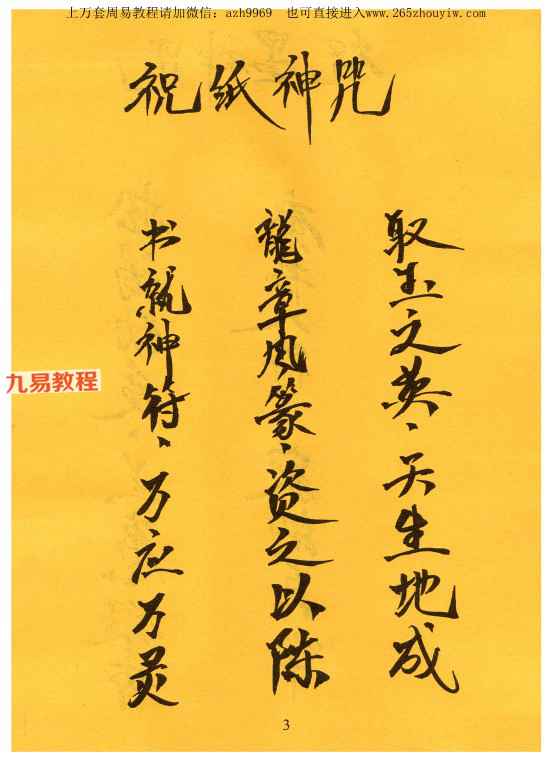 上万套周易教程请加微信：azh9969 也可直接进入www.265zhouyiw.com
祝纸神咒
取玉之英、天生地成、
龍章凤篆、资之以陈
书就神符、万应万灵
九易教程
3